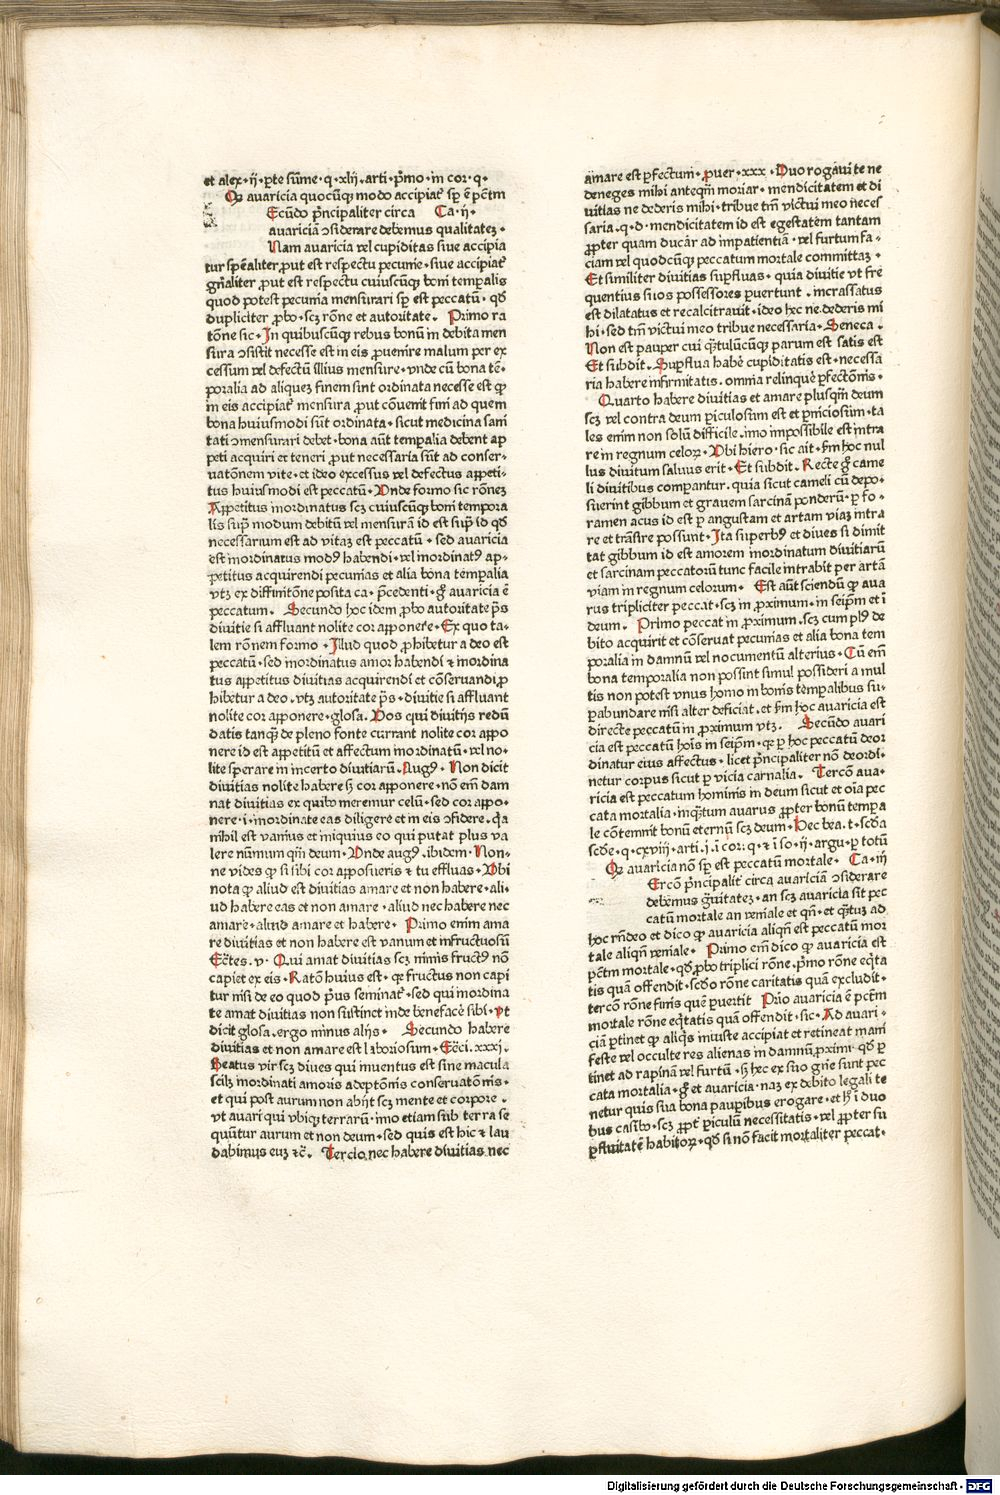 et alex·ij·pte sūme·q·xlij·arti·pͥmo·in cor·q·
Qꝫ avaricia quocūqꝫ modo accipiat᷑ sp̄ ē pctm̄
Ecūdo pͥncipaliter circa Ca·ij·
avariciā ɔsiderare debemus qualitatez·
Nam avaricia vel cupiditas siue accipia
tur spēaliter ꝓut est respectu pecunie·siue accipiat᷑
gn̄aliter ꝓut est respectu cuiuscūqꝫ boni temꝑalis
quod potest pecunia mensurari sp̄ est peccatū·qd̄
dupliciter ꝓbo·scꝫ rōne et autoritate. Primo ra
tōne sic·In quibuscūqꝫ rebus bonū in debita men
sura ɔsistit necesse est in eis ꝓuenire malum per ex
cessum vel defectū illius mensure·vnde cū bona tē-
poralia ad aliquez finem sint ordinata necesse est ꝙ
in eis accipiat᷑ mensura ꝓut cōuenit fini ad quem
bona huiusmodi sūt ordinata·sicut medicina sani
tati ɔmensurari debet·bona aūt tempalia debent ap
peti acquiri et teneri ꝓut necessaria sūt ad conser-
uatōnem vite·et ideo excessus vel defectus appeti-
tus huiusmodi est peccatū·Vnde formo sic rōnez
Appetitus inordinatus scꝫ cuiuscūqꝫ boni tempora
lis supͣ modum debitū vel mensurā id est supͣ id qd̄
necessarium est ad vitaz est peccatū·sed avaricia
est inordinatus modꝰ habendi·vel inordinatꝰ ap-
petitus acquirendi pecunias et alia bona tempalia
vtꝫ ex diffinitōne posita ca·pͥcedenti·gͦ avaricia ē
peccatum. Secundo hoc idem ꝓbo autoritate pͣs
diuitie si affluant nolite cor apponere·Ex quo ta-
lem rōnem formo·Illud quod ꝓhibetur a deo est
peccatū·sed inordinatus amor habendi ⁊ inordina
tus appetitus diuitias acquirendi et cōseruandi ꝓ
hibetur a deo·vtꝫ autoritate pͣs·diuitie si affluant
nolite cor apponere·glosa. Vos qui diuitijs redū
datis tanqꝫ de pleno fonte currant nolite cor appo
nere id est appetitū et affectum inordinatū·vel no-
lite sperare in incerto diuitiarū. Augꝰ·Non dicit
diuitias nolite habere sꝫ cor apponere·nō em̄ dam
nat diuitias ex quibo meremur celū·sed cor appo-
nere·i·inordinate eas diligere et in eis ɔfidere·qͣa
nihil est vanius et iniquius eo qui putat plus va
lere nūmum qm̄ deum·Vnde augꝰ·ibidem·Non-
ne vides ꝙ si sibi cor apposueris ⁊ tu effluas·Vbi
nota ꝙ aliud est diuitias amare et non habere·ali-
ud habere eas et non amare·aliud nec habere nec
amare·aliud amare et habere· Primo enim ama
re diuitias et non habere est vanum et infructuosū
Ecc̄tes·v· Qui amat diuitias scꝫ nimis fructꝰ nō
capiet ex eis·Ratō huius est·qͣ fructus non capi
tur nisi de eo quod pͥus seminat᷑·sed qui inordina
te amat diuitias non sustinet inde benefacē sibi·vt
dicit glosa·ergo minus alijs· Secundo habere
diuitias et non amare est laboriosum·Ecc̄i·xxxi·
Beatus vir scꝫ diues qui inuentus est sine macula
scilꝫ inordinati amoris adeptōnis conservatōnis·
et qui post aurum non abijt scꝫ mente et corpore·
vt auari qui vbiqꝫ terrarū·imo etiam sub terra se
quūtur aurum et non deum·sed quis est hic ⁊ lau
dabimus euz ⁊c̄. Tercio nec habere diuitias nec
amare est ꝑfectum·ꝓuer·xxx·Duo rogaui te ne
deneges mihi anteqm̄ moriar·mendicitatem et di
uitias ne dederis mihi·tribue tm̄ victui meo neces
saria·q·d·mendicitatem id est egestatem tantam
ꝓpter quam ducar ad impatientiā·vel furtum fa-
ciam vel quodcūqꝫ peccatum mortale committaz·
Et similiter diuitias supfluas·quia diuitie vt fre
quentius suos possessores ꝑuertunt·incrassatus
est dilatatus et recalcitrauit·ideo hec ne dederis mi
hi·sed tm̄ victui meo tribue necessaria·Seneca·
Non est pauper cui qͣtulūcūqꝫ parum est satis est
Et subdit·Supflua habē cupiditatis est·necessa
ria habere infirmitatis·omnia relinquē ꝑfectōnis·
Quarto habere diuitias et amare plusqm̄ deum
scꝫ vel contra deum ꝑiculosum est et ꝑniciosum·ta
les enim non solū difficile·imo impossibile est intra
re in regnum celoꝝ·Vbi hiero·sic ait·fm̄ hoc nul
lus diuitum saluus erit·Et subdit·Recte gͦ came
li diuitibus compantur·quia sicut cameli cū depo-
suerint gibbum et grauem sarcinā ponderū·ꝑ fo-
ramen acus id est ꝑ angustam et artam viaz intra
re et trāsire possunt·Ita superbꝰ et diues si dimit
tat gibbum id est amorem inordinatum diuitiarū
et sarcinam peccatorū tunc facile intrabit per artā
viam in regnum celorum· Est aūt sciendū ꝙ ava
rus tripliciter peccat·scꝫ in ꝓximum·in seipm̄ et ī
deum. Primo peccat in ꝓximum·scꝫ cum plꝰ de
bito acquirit et cōseruat pecunias et alia bona tem
poralia in damnū vel nocumentū alterius·Cū em̄
bona temporalia non possint simul possideri a mul
tis non potest vnus homo in bonis temporalibus su-
pabundare nisi alter deficiat·et fm̄ hoc avaricia est
directe peccatū in ꝓximum vtꝫ. Secūdo avari
cia est peccatū hoīs in seipm̄·qͣ ꝑ hoc peccatū deor
dinatur eius affectus·licet pͥncipaliter nō deordi-
netur corpus sicut ꝑ vicia carnalia. Tercō ava-
ricia est peccatum hominis in deum sicut et oīa pec
cata mortalia·inqͣtum avarus ꝓpter bonū tempa
le cōtemnit bonū eternū scꝫ deum·Hec bea·t·scd̄a
scd̄e·q·cxviij·arti·j·i cor·q·⁊ i so·ij·argu·ꝑ totū
Qꝫ avaricia nō sp̄ est peccatū mortale· Ca·iij
Ercō pͥncipalit᷑ circa avariciā ɔsiderare
debemus gͣuitatez·an scꝫ avaricia sit pec
catū mortale an veniale et qn̄·et qͣtuꝫ ad
hoc rn̄deo et dico ꝙ avaricia aliqn̄ est peccatū mor
tale aliqn̄ veniale· Primo em̄ dico ꝙ avaricia est
pctm̄ mortale·qd̄ ꝓbo triplici rōne·pͥmo rōne eqͥta
tis quā offendit·scd̄o rōne caritatis quā excludit·
tercō rōne finis quē ꝑuertit Prīo avaricia ē pctm̄
mortale rōne eqͥtatis quā offendit·sic·Ad avari-
ciā ꝑtinet ꝙ aliqͥs iniuste accipiat et retineat mani
feste vel occulte res alienas in damnū ꝓximi·qd̄ ꝑ
tinet ad rapinā vel furtū·sꝫ hec ex suo gn̄e sunt pec
cata mortalia·gͦ et avaricia·naz ex debito legali te
netur quis sua bona pauꝑibus erogare·et hͦ i duo
bus casibo·scꝫ ꝓpt᷑ ꝑiculū necessitatis·vel ꝓpter su
pfluitatē habitoꝝ·qd̄ si nō facit mortaliter peccat·
Digitalisierung gefördert durch die Deutsche Forschungsgemeinschaft - DFG